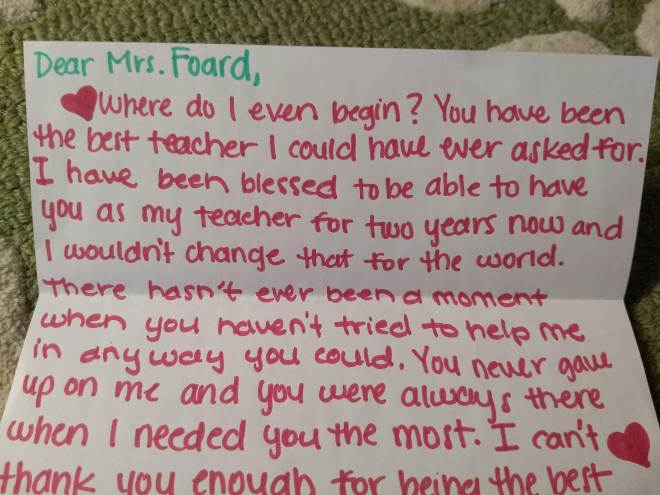 Dear Mrs. Foard,
Where do I even begin? You have been
the best teacher I could have ever asked for.
I have been blessed to be able to have
you as my teacher for two years now and
I wouldn't change that for the world.
There hasn't ever been a moment
when you haven't tried to help me
in any way you could. You never gave
up on me and you were always there
when I needed you the most. I can't
thank you enough for being the best